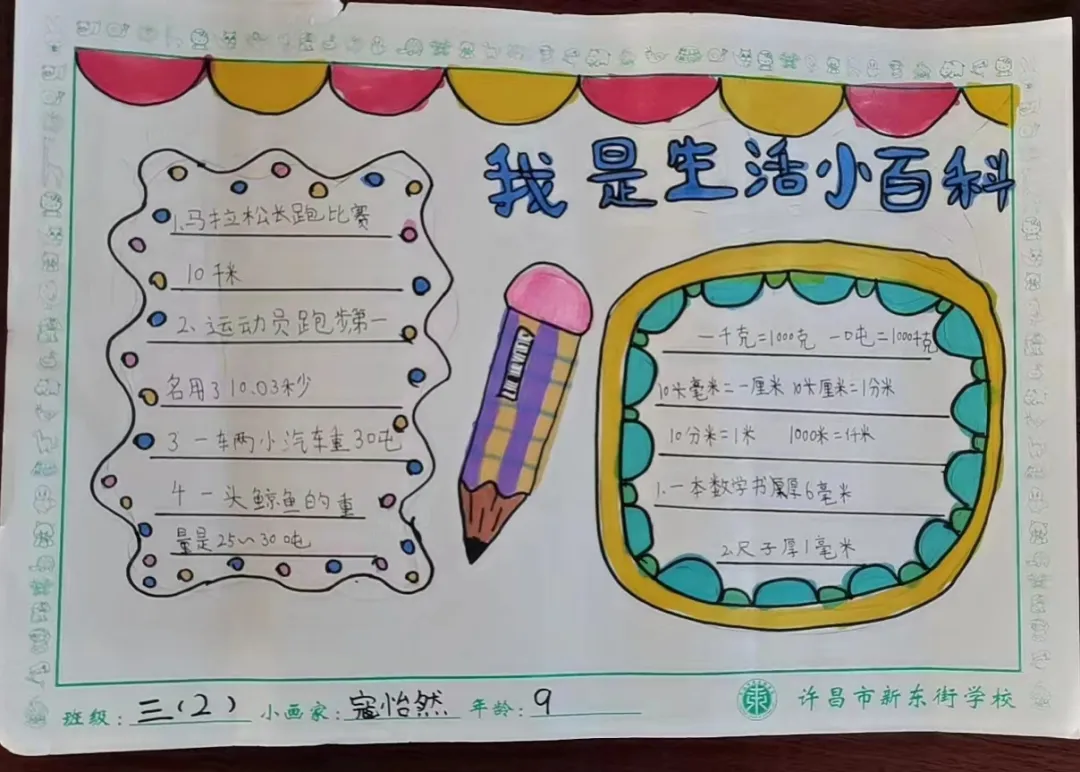 我是生活小百科
1.马拉松长跑比赛
10千米
2、运动员跑步第一
名用310.03秒
3 一车两小汽车重30吨
4 一头鲸鱼的重
量是25~30吨
一千克=1000克 一吨=1000千克
10毫米=一厘米 10厘米=1分米
10分米=1米 1000米=1千米
1.一本数学书厚6毫米
2.尺子厚1毫米
班级:三(2) 小画家:寇怡然 年龄:9
许昌市新东街学校